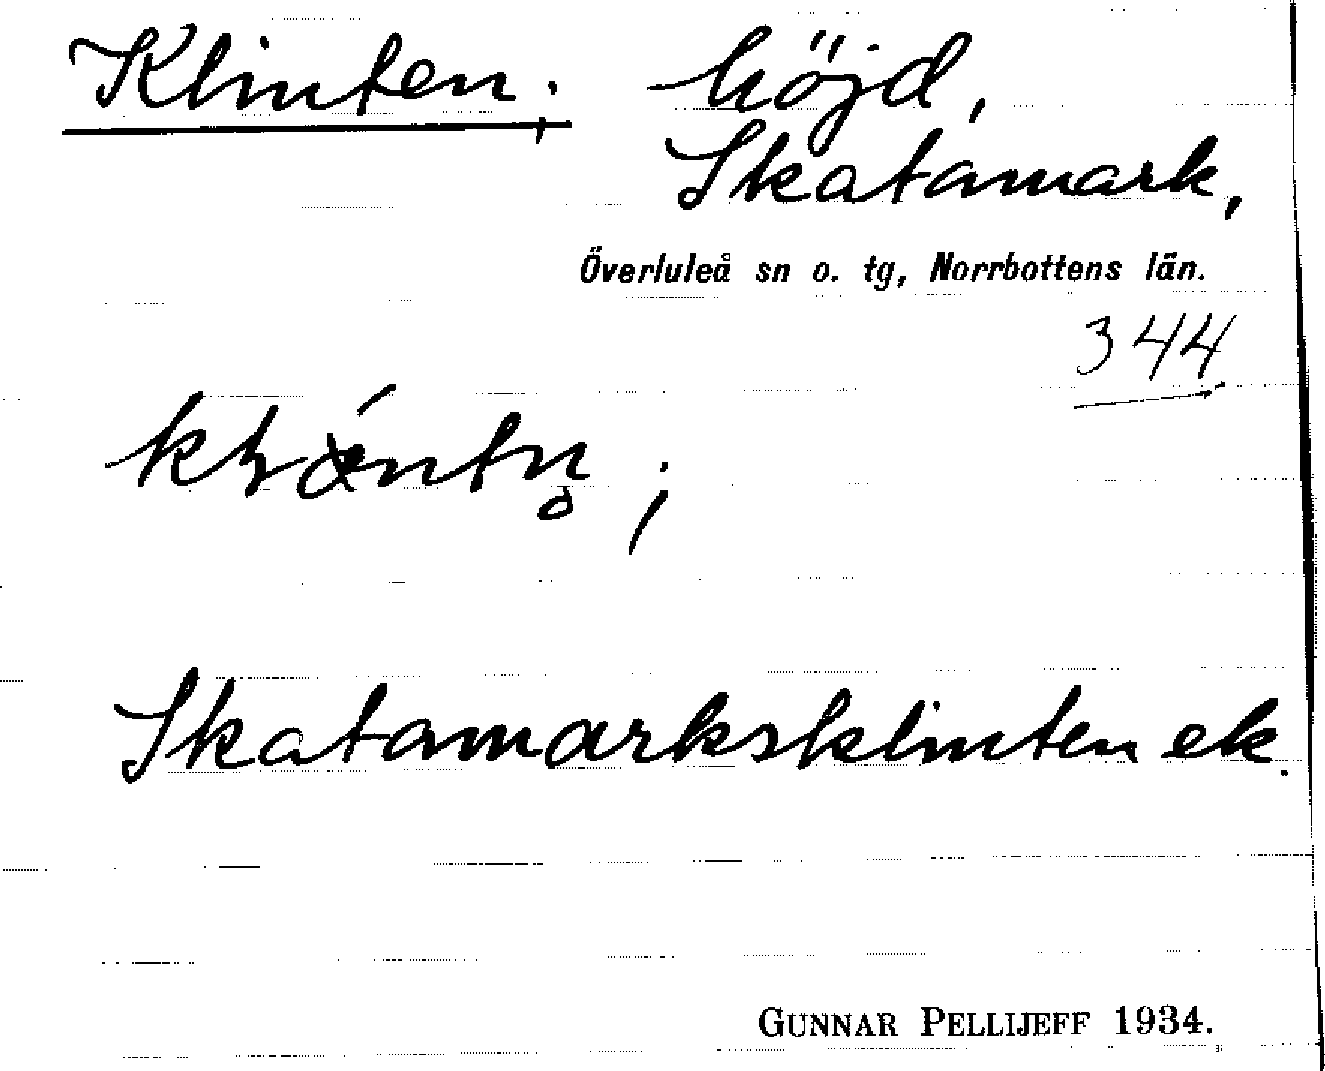 Klinten. höjd,
Skatamark,
Överluleå sn o. tg, Norrbottens län.
344
Skatamarksklinten ek.
GUNNAR PELLIJEFF 1934.